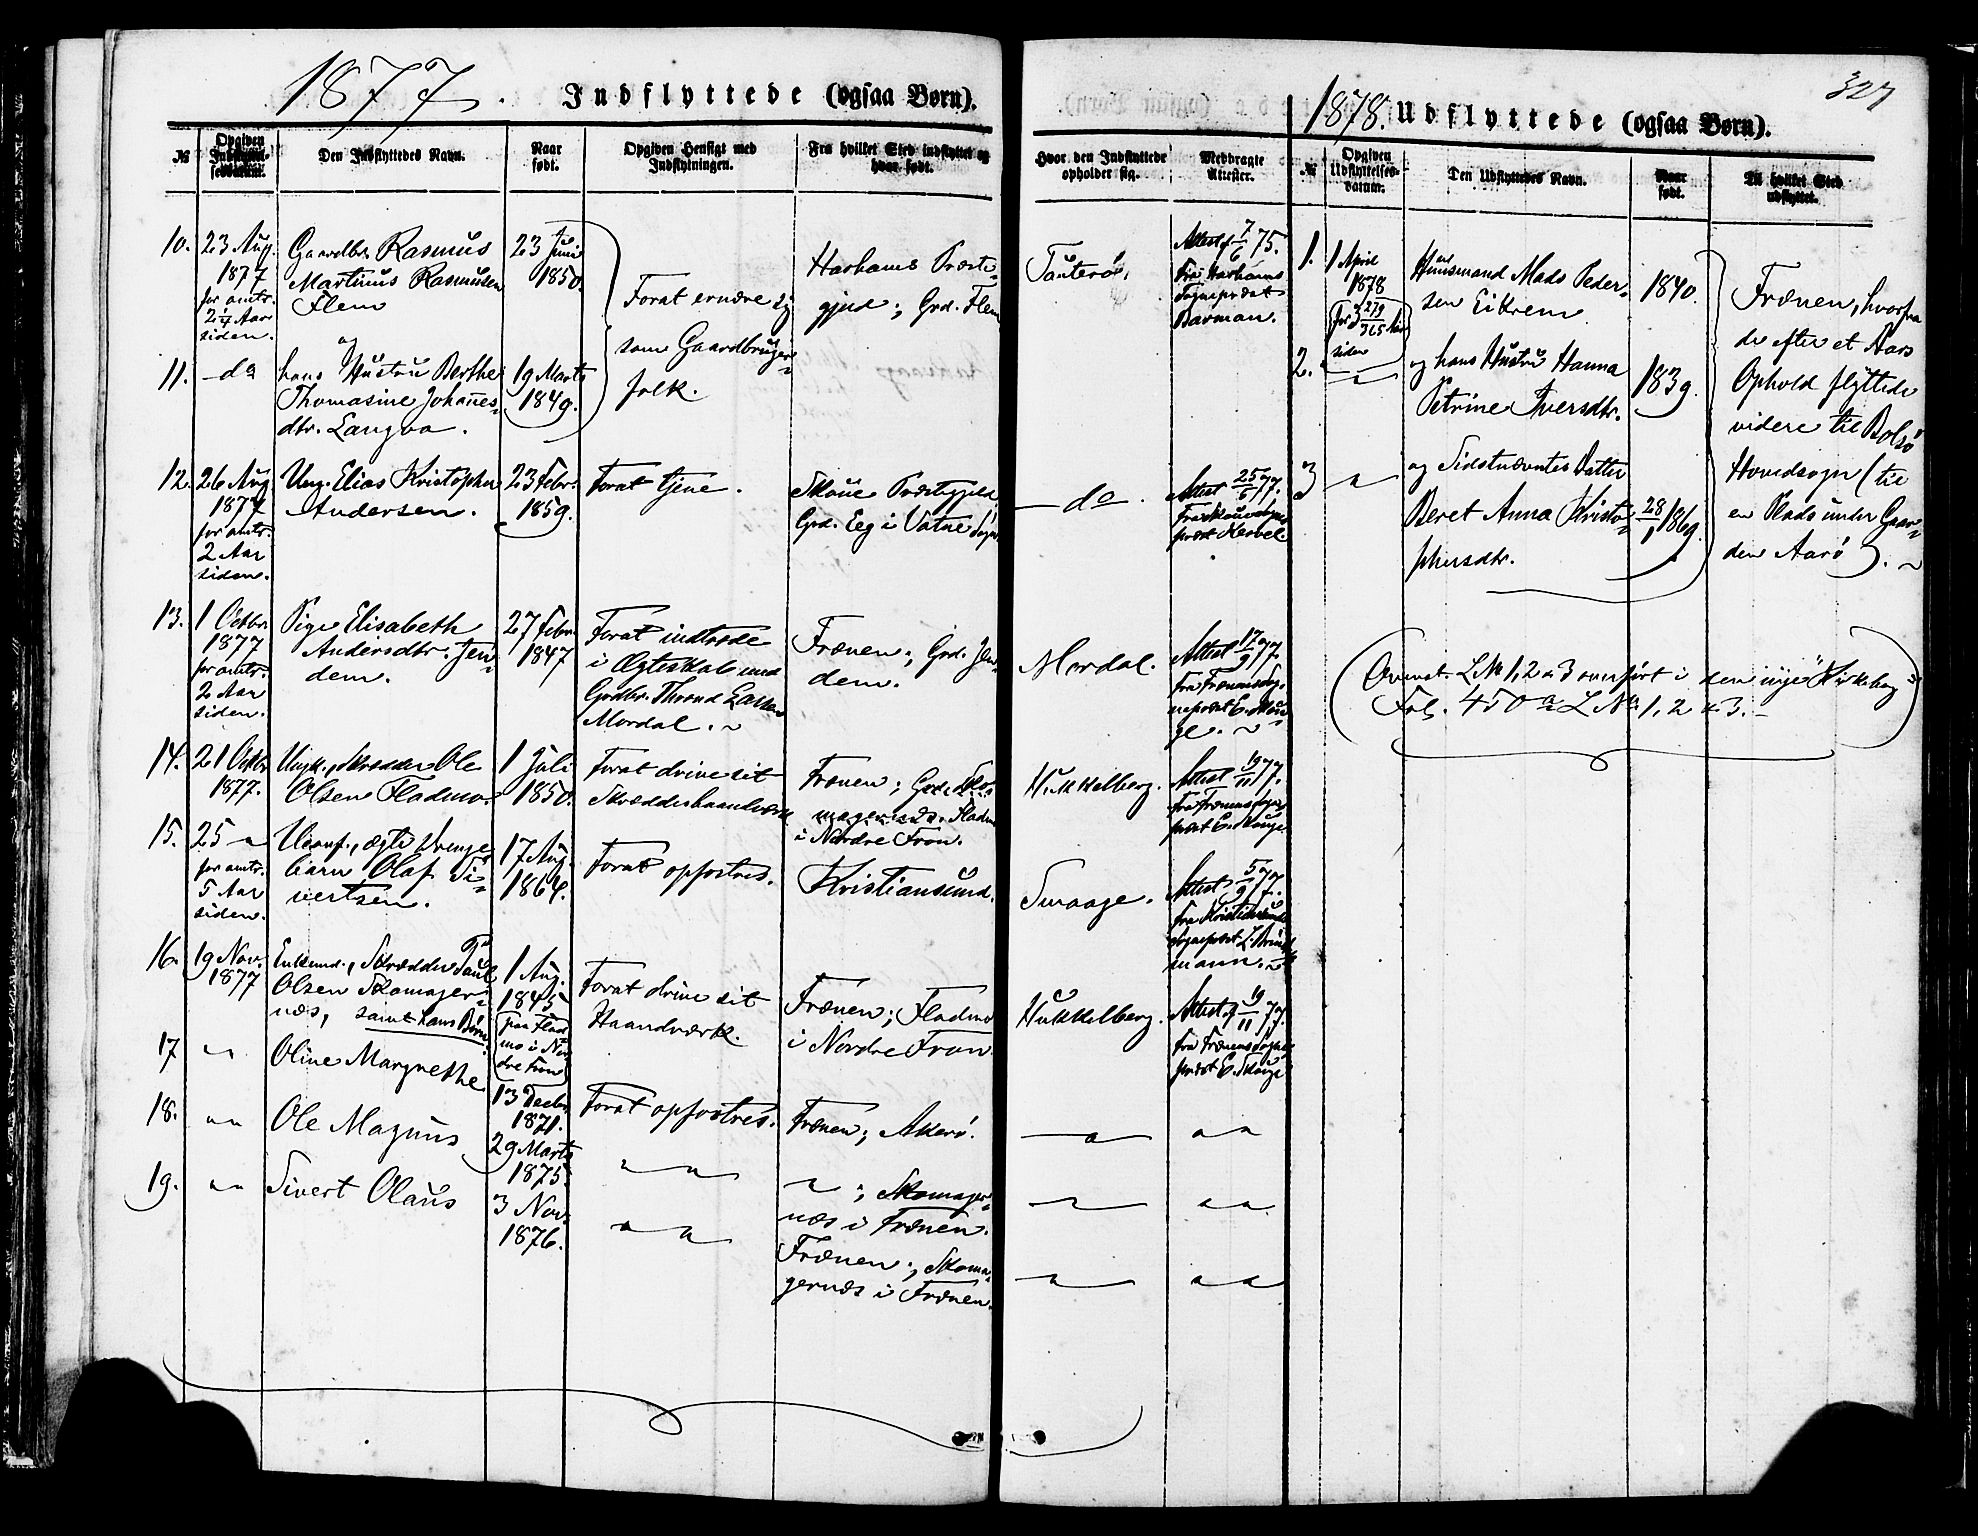 1877.
Indflyttede (ogsaa Børn).
№
Opgiven Indflyttelsesdatum.
Den Indflyttedes Navn.
Naar født.
Opgiven Hensigt med Indflytningen.
Fra hvilket Sted indflyttet og hvor født.
Hvor den Indflyttede opholder sig.
Medbragte Attester.
10.
23 Aug.
1877
for omtr.
2 1/4 Aar
siden.
Gaardbr. Rasmus
Martinus Rasmusen
Flem
og
23 Juni
1850.
Forat ernære sig
som Gaardbruger-
folk.
Harhams Præste-
gjeld; Grd. Flem
Tauterø.
Attest 7/6 75.
fra Harhams
Sogneprest
Barman.
11.
— do
hans Hustru Berthe
Thomasine Johañes-
dtr. Langva.
19 Marts
1849.
12.
26 Aug.
1877
for omtr.
2 Aar
siden.
Ung. Elias Kristopher
Andersen.
23 Febr.
1859.
Forat tjene.
Skoue Præstegjeld
Grd. Eeg i Vatne Sogn
— do.
Attest 25/6 77.
13.
1 Octbr.
1877
for omtr.
2 Aar
siden.
Pige Elisabeth
Andersdtr. Jen-
dem.
27 Febr.
1847
Forat indtræde
i Ægteskab med
Grdbr. Thrond Larsen
Mordal. ~
Frænen; Grd. Jen-
dem.
Mordal.
Attest 17/9 77.
fra Frænens Sog-
neprest E. Skou-
ge. ~
14.
21 Octbr.
1877.
Ungk., Skrædder Ole
Olsen Fladmo.
1 Juli
1850.
Forat drive sit
Skrædderhaandværk
Frænen; Grd. Sko-
magernæs. Fladmo
i Nordre Fron.
Hukkelberg.
Attest 19/11 77.
fra Frænens Sogne-
prest E. Skouge
15.
25 —
for omtr.
5 Aar
siden.
Ukonf., ægte Drenge-
barn Olaf Si-
vertsen.
17 Aug.
1864.
Forat opfostres.
Kristiansund.
Smaage.
Attest 5/9 77.
fra Kristiansunds
Sogneprest
16.
19 Nov.
1877
Enkemd., Skrædder Paul
Olsen Skomager-
næs, samt hans Børn:
1 Aug.
1845
(paa Flad-
mo i Nor-
dre Fron)
Forat drive sit
Haandværk.
Frænen; Fladmo
i Nordre Fron.
Hukkelberg.
Attest 19/11 77.
fra Frænens Sogne-
prest E. Skouge
17
— "
Oline Margrethe
13 Decbr.
1871.
Forat opfostres.
Frænen; Akerø.
— " —
" "
18.
" "
Ole Magnus
29 Marts
1875.
" "
— " —; Skomager-
næs i Frænen.
— " —
" "
19.
" "
Sivert Olaus
3 Nov.
1876.
" "
Frænen; Skoma-
gernæs i Frænen.
— " —
" "
327
1878.
Udflyttede (ogsaa Børn).
№
Opgiven Udflyttelsesdatum.
Den Udflyttedes Navn.
Naar født.
Til hvilket Sted udflyttet.
1.
1 April
1878
(for 3 279/365 Aar
siden
Huusmand Mads Peder-
sen Eikrem
1840.
Frænen, hvorfra
de efter et Aars
Ophold flyttede
videre til Bolsø
Hovedsogn (til
en Plads under Gaar-
den Aarø). ~
2.
— " —
og hans Hustru Hanna
Petrine Iversdtr.
1839.
3
— " —
og Sidstnævntes Datter
Beret Anna Kristo-
phersdtr.
28/1 1869.
(Ovenst. L.№ 1, 2 & 3 overført i den "nye" Kirkebog
Fol. 450 a L № 1, 2 & 3. —